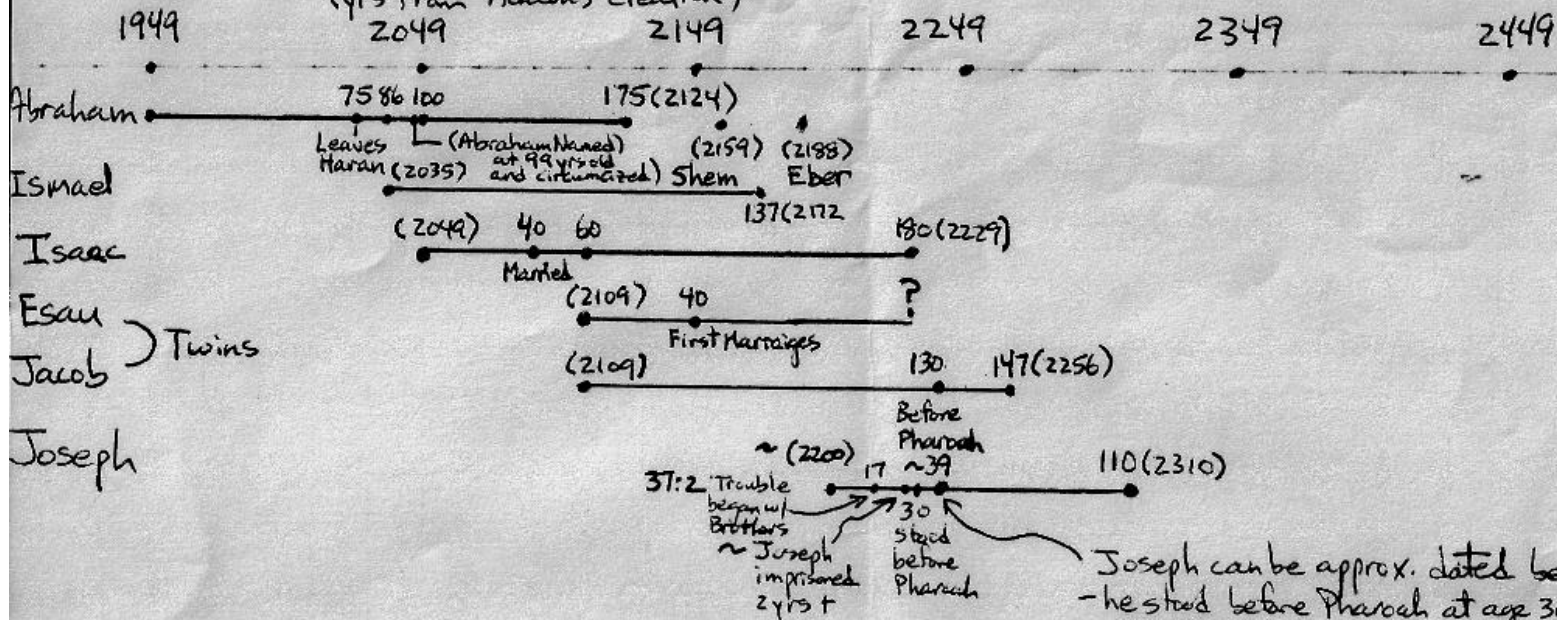 (yrs from Adam's Creation)
1949 2049 2149 2249 2349 2449
Abraham 75 86 100 175(2124)
Leaves Haran
(Abraham Named) at 99 yrs old and circumcized)
(2159) Shem
(2188) Eber
Ismael (2035) 137(2172
Isaac (2049) 40 60 180(2229)
Married
Esau (2109) 40 ?
First Marraiges
Twins
Jacob (2109) 130 147(2256)
Before
Pharoah
Joseph ~(2200) 17 ~39 110(2310)
37:2 Trouble
began w/
Brothers
~ Joseph
imprisoned
2yrs +
30
stood
before
Pharoah
Joseph can be approx. dated be
-he stood before Pharoah at age 3